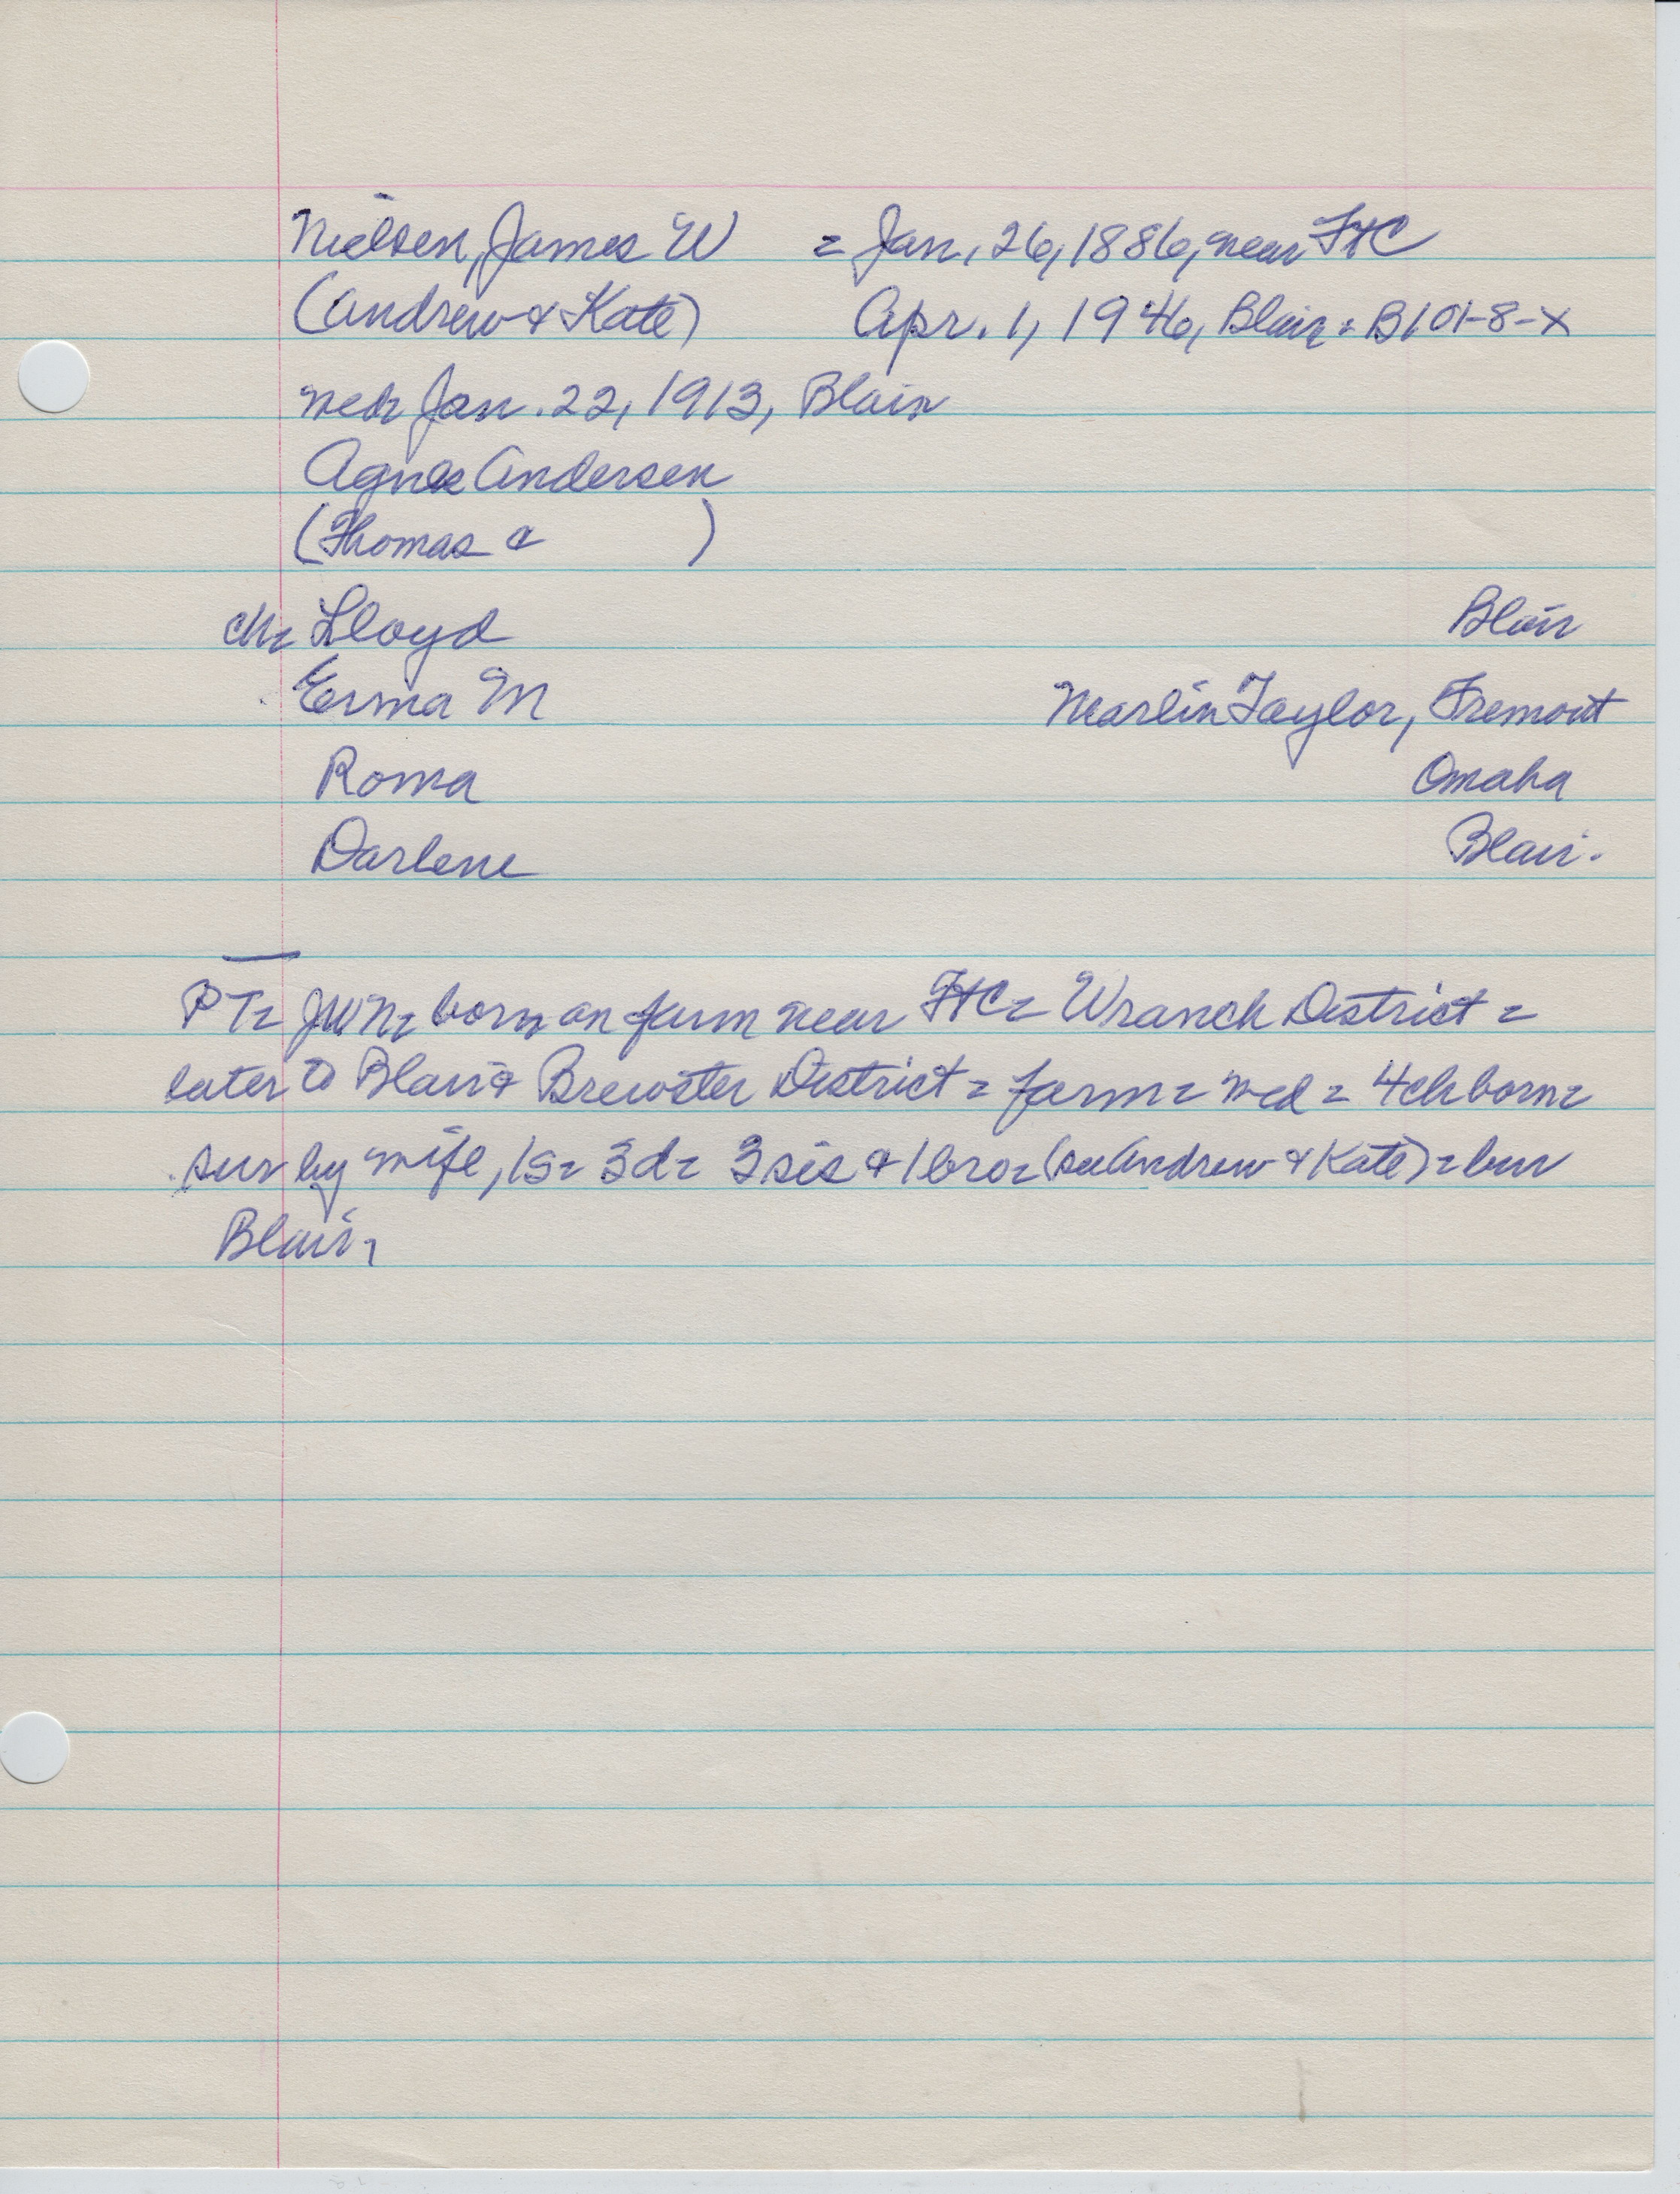 Nielsen, James W = Jan. 26, 1886, near FtC
(Andrew & Kate) Apr. 1, 1946, Blair = B101-8-X
med Jan. 22, 1913, Blair
Agnes Andersen
(Thomas & )
ch= Lloyd Blair
Erma M Marlin Taylor, Fremont
Roma Omaha
Darlene Blair.
PT= JWN= born on farm near FtC= Wranch District =
later to Blair & Brewster District = farm = med = 4ch born=
sur by wife, 1s= 3d= 3sis & 1bro= (see Andrew & Kate) = bur
Blair,